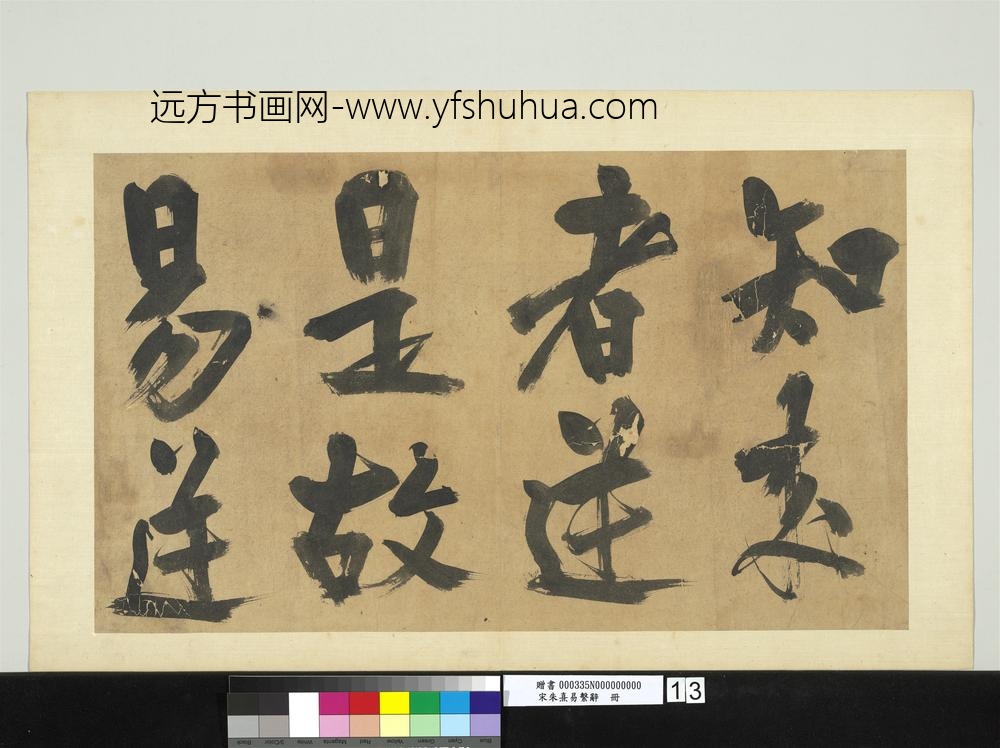 远方书画网-www.yfshuhua.com
知来
者逆
是故
易逆
贈書 000335N000000000
宋朱熹易繫辭 冊
13
Black
3/Color
White
Magenta
Red
Yellow
Green
Cyan
Blue